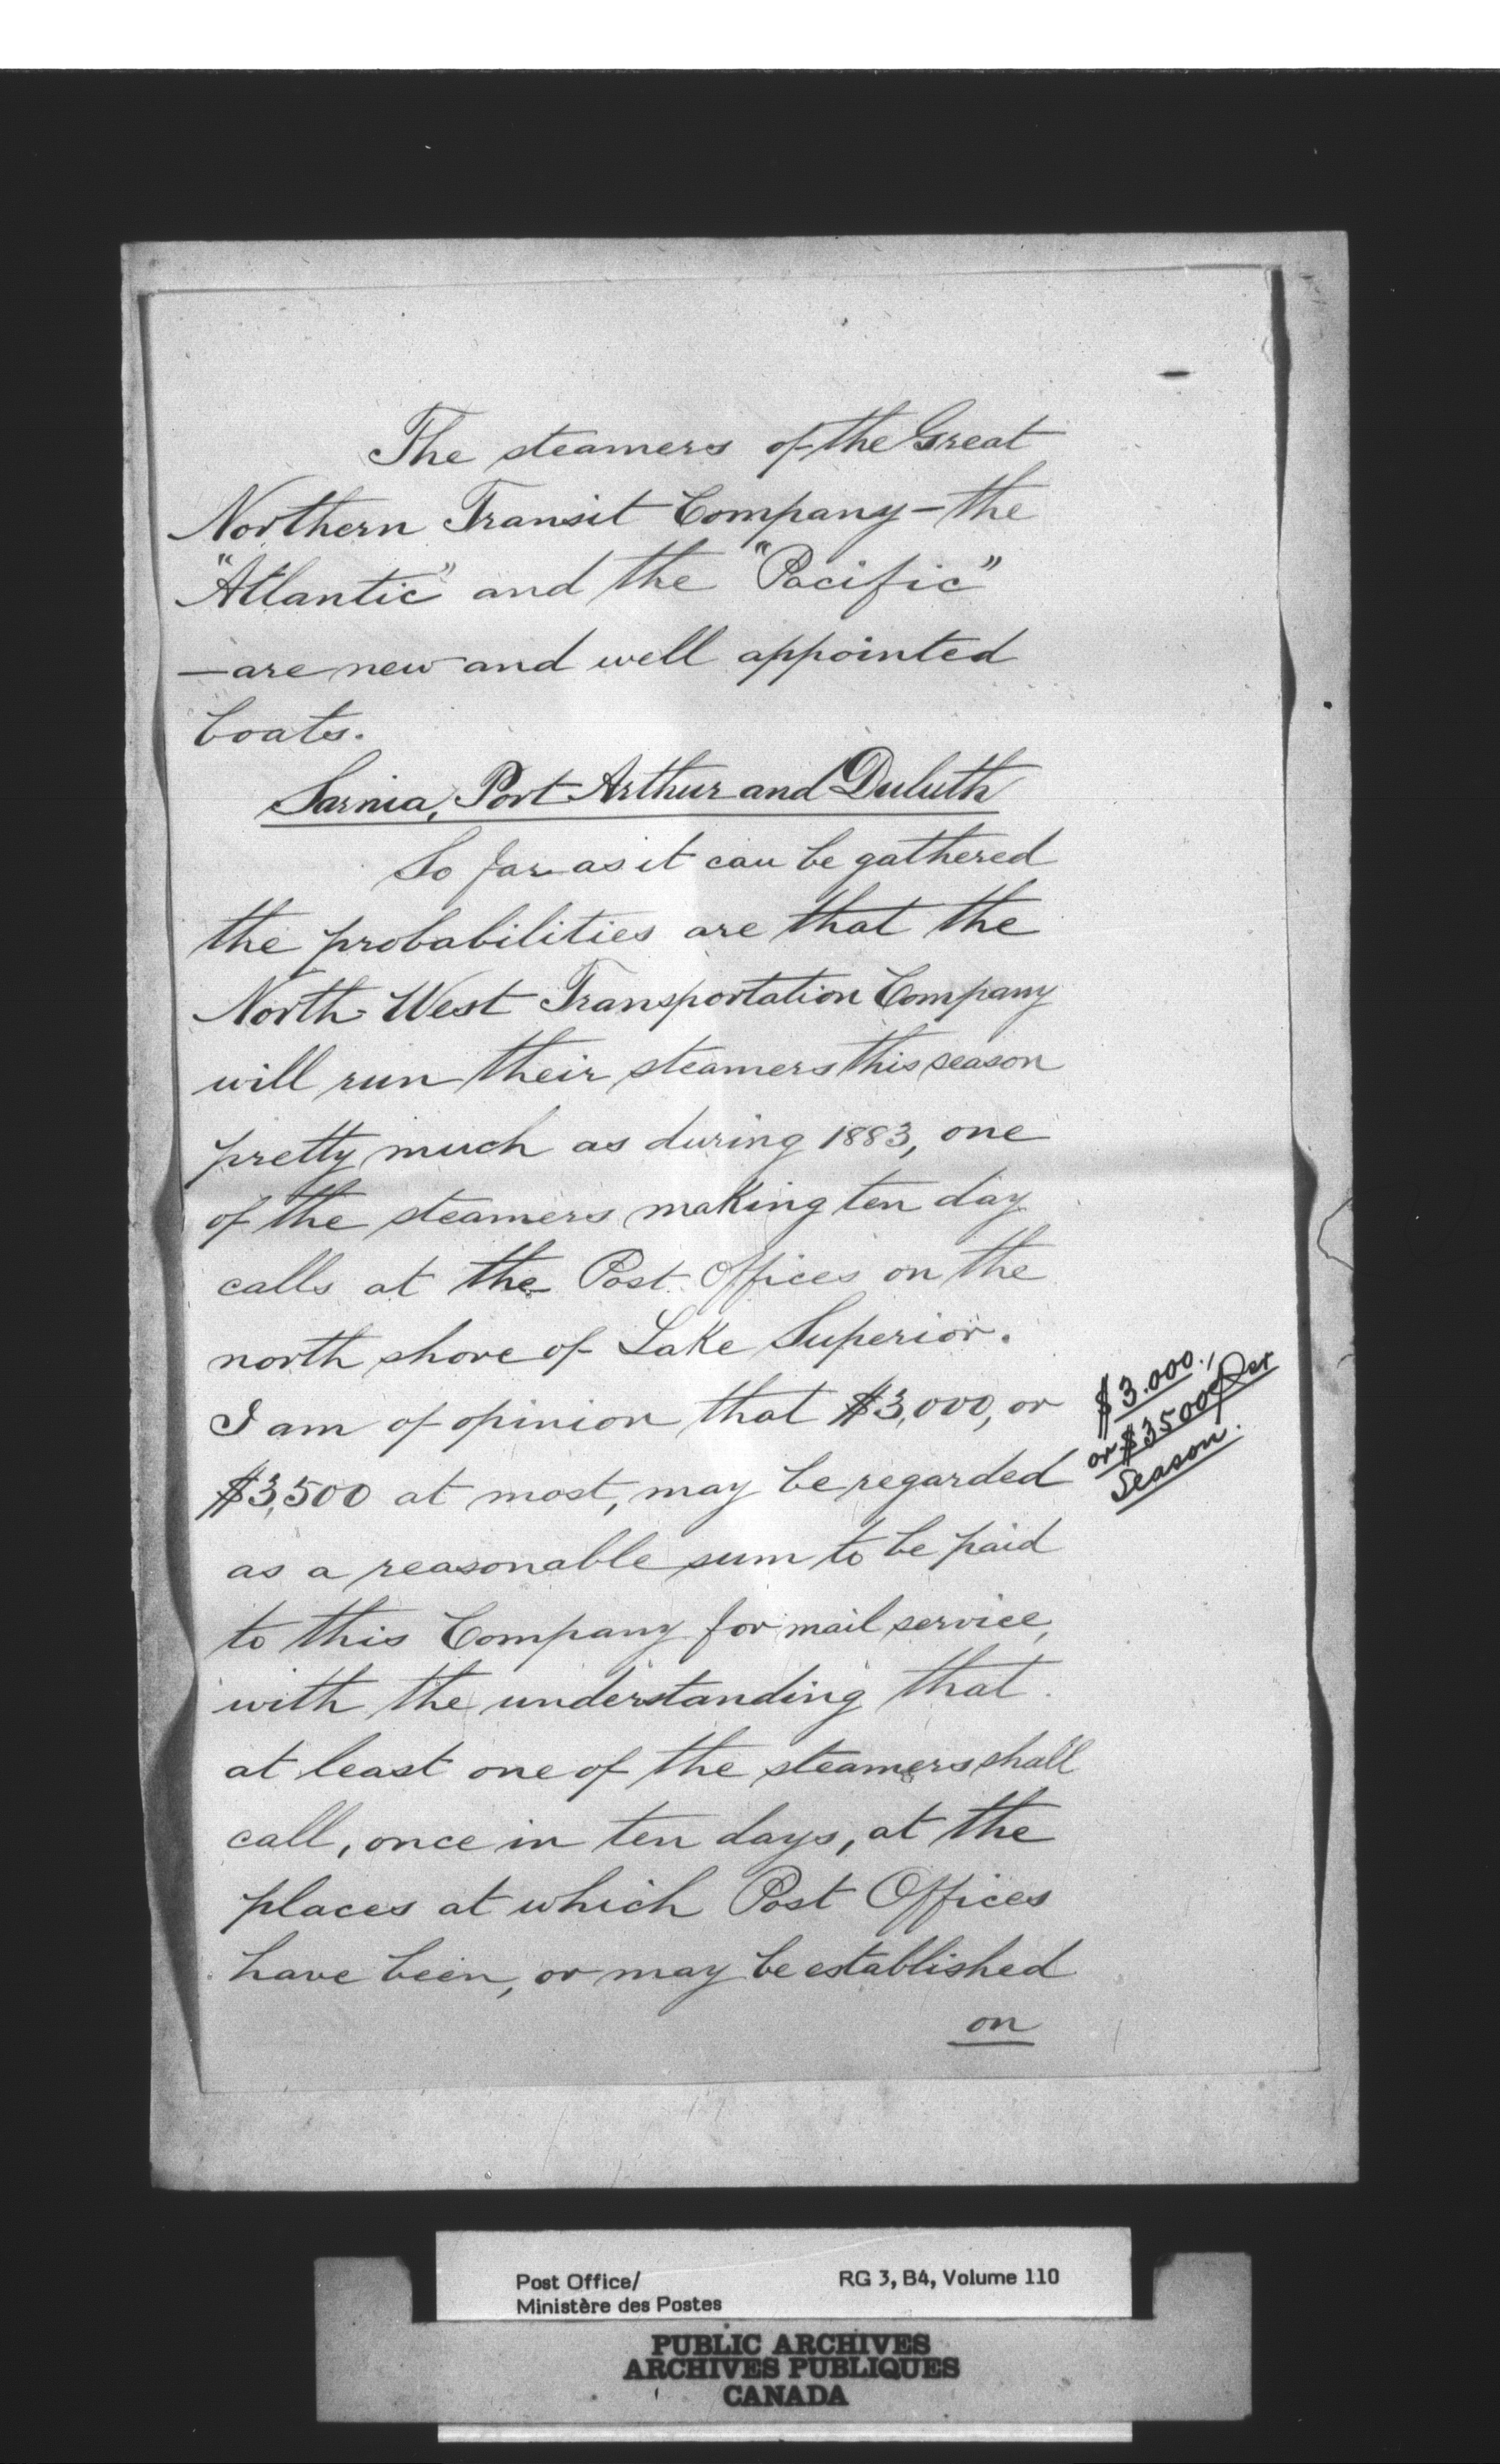 The steamers of the Great
Northern Transit Company – the
"Atlantic" and the "Pacific"
– are new and well appointed
boats.
Sarnia, Port Arthur and Duluth
So far as it can be gathered
the probabilities are that the
North West Transportation Company
will run their steamers this season
pretty much as during 1883, one
of the steamers making ten day
calls at the Post Offices on the
north shore of Lake Superior.
I am of opinion that $3,000, or
$3,500 at most, may be regarded
as a reasonable sum to be paid
to this Company for mail service,
with the understanding that
at least one of the steamers shall
call, once in ten days, at the
places at which Post Offices
have been, or may be established
on
$3.000.,
or $3500 per
Season.
Post Office/
Ministère des Postes
RG 3, B4, Volume 110
PUBLIC ARCHIVES
ARCHIVES PUBLIQUES
CANADA